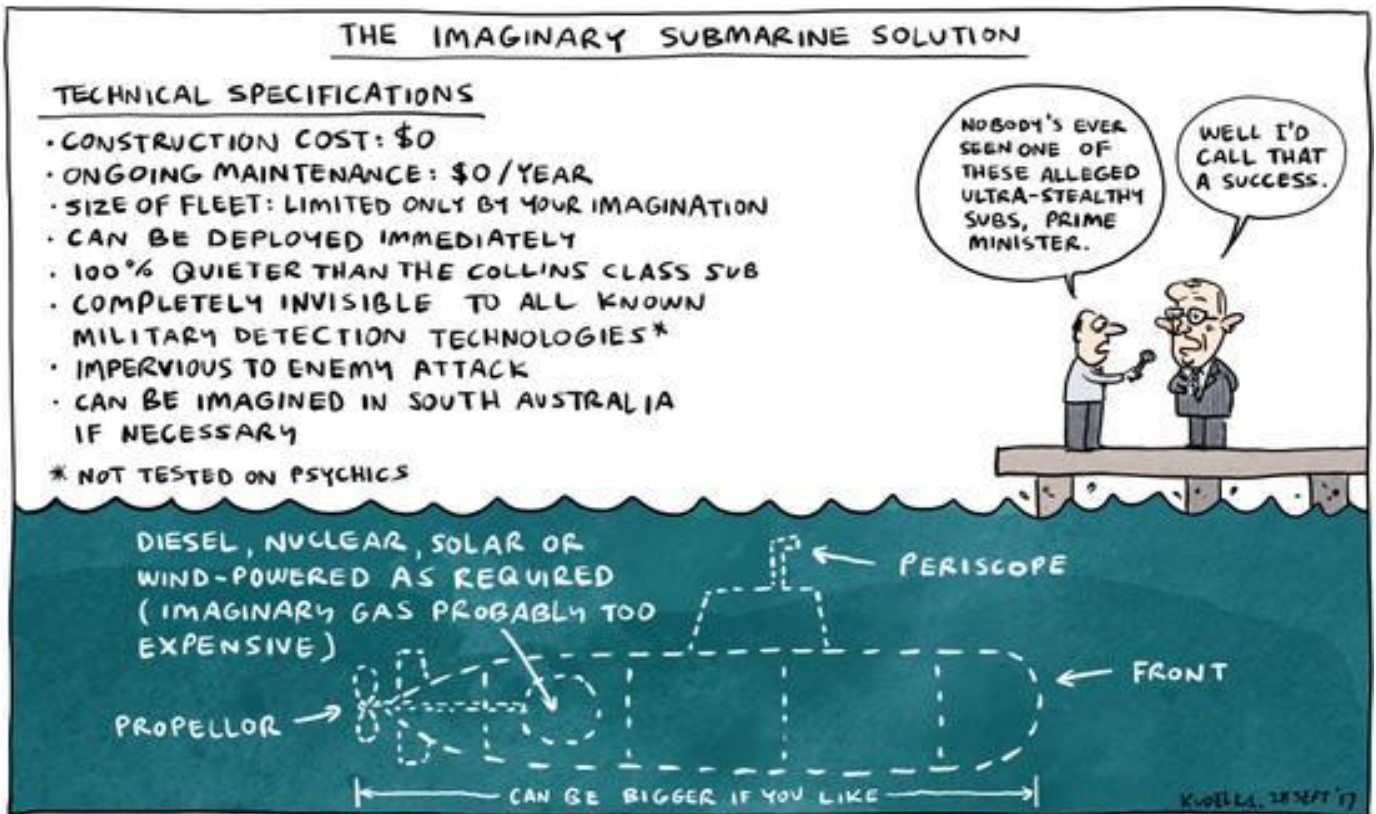 THE IMAGINARY SUBMARINE SOLUTION
TECHNICAL SPECIFICATIONS
· CONSTRUCTION COST: $0
· ONGOING MAINTENANCE: $0/YEAR
· SIZE OF FLEET: LIMITED ONLY BY YOUR IMAGINATION
· CAN BE DEPLOYED IMMEDIATELY
· 100% QUIETER THAN THE COLLINS CLASS SUB
· COMPLETELY INVISIBLE TO ALL KNOWN
MILITARY DETECTION TECHNOLOGIES*
· IMPERVIOUS TO ENEMY ATTACK
· CAN BE IMAGINED IN SOUTH AUSTRALIA
IF NECESSARY
* NOT TESTED ON PSYCHICS
NOBODY'S EVER
SEEN ONE OF
THESE ALLEGED
ULTRA-STEALTHY
SUBS, PRIME
MINISTER.
WELL I'D
CALL THAT
A SUCCESS.
DIESEL, NUCLEAR, SOLAR OR
WIND-POWERED AS REQUIRED
(IMAGINARY GAS PROBABLY TOO
EXPENSIVE)
PERISCOPE
FRONT
PROPELLOR
CAN BE BIGGER IF YOU LIKE
KUDELKA, 28 SEPT '17